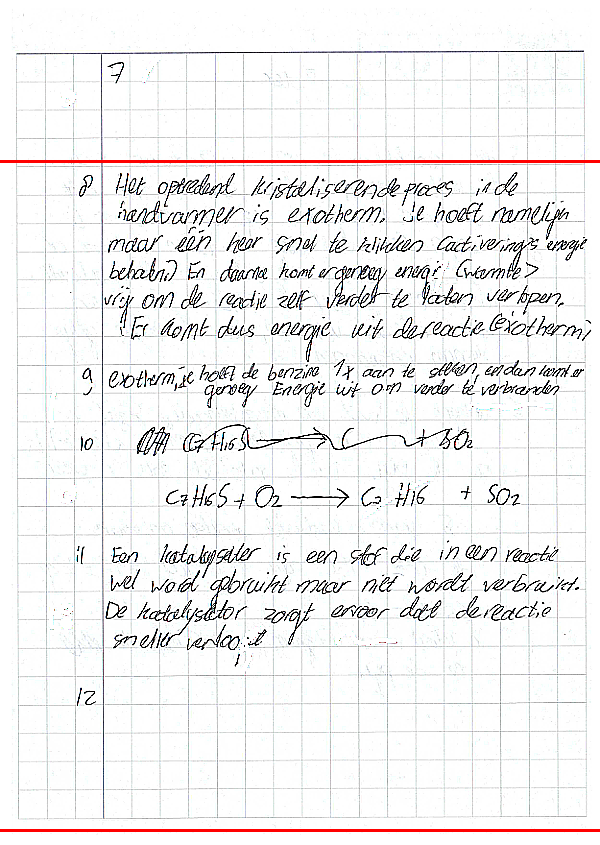 7
8 Het optredend kristaliserende proces in de
handwarmer is exotherm. Je hoeft namelijk
maar één keer snel te klikken (activering's energie
behaln.) En daarna komt er genoeg energi (warmte>
vrij om de reactie zelf verder te laten verlopen.
Er komt dus energie uit de reactie (exotherm)
9 exotherm, je hoeft de benzine 1x aan te steken, en dan komt er
genoeg Energie uit om verder te verbranden
10 C7H16S → C + SO2
C7H16S + O2 → C7 H16 + SO2
11 Een katalysater is een stof die in een reactie
wel word gebruikt maar niet wordt verbruikt.
De katalysator zorgt ervoor dat de reactie
sneller verloopt
12